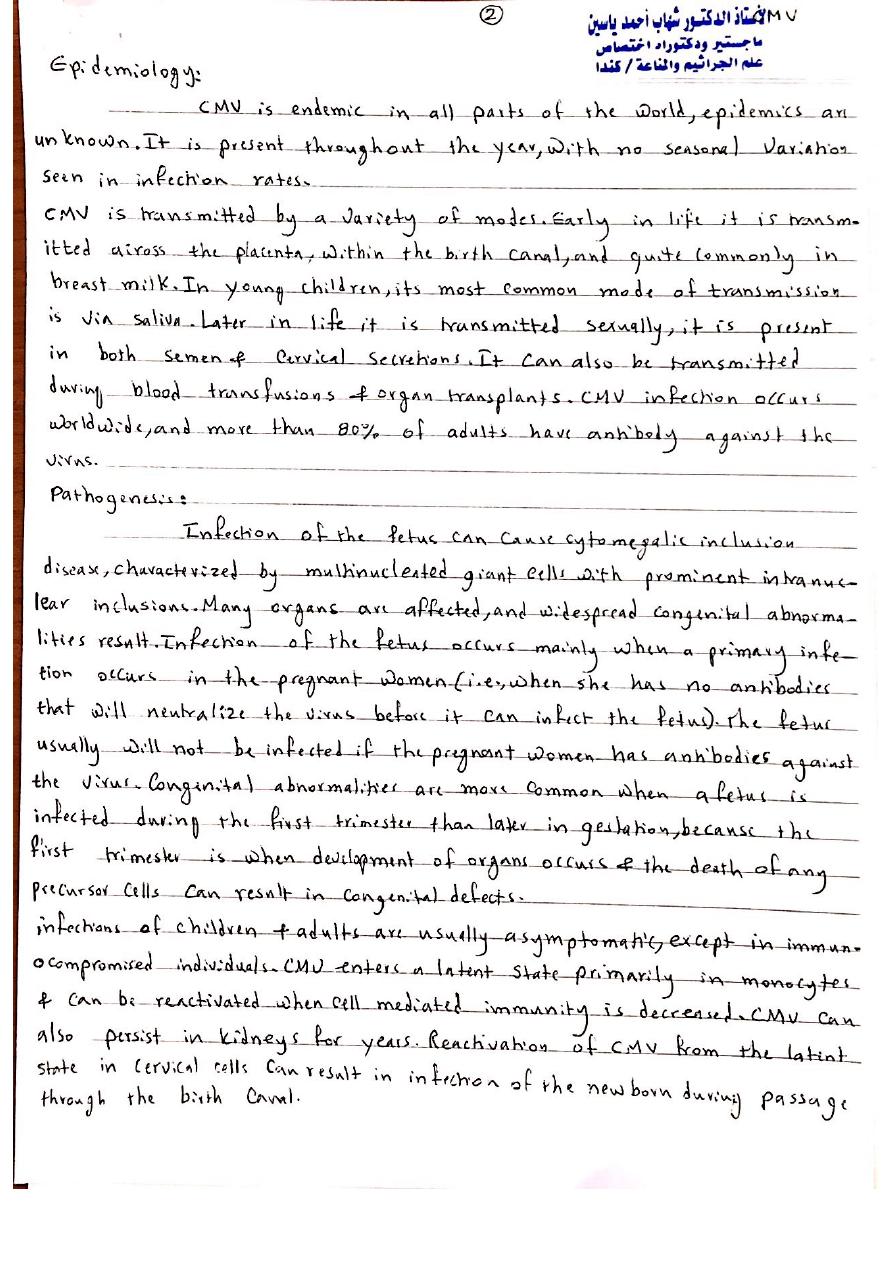 ②
CMV
الأستاذ الدكتور شهاب أحمد ياسين
ماجستير ودكتوراه اختصاص
علم الجراثيم والمناعة / كندا
Epidemiology:
CMV is endemic in all parts of the world, epidemics are
unknown. It is present throughout the year, with no seasonal variation
seen in infection rates.
CMV is transmitted by a variety of modes. Early in life it is transm-
itted across the placenta, within the birth canal, and quite commonly in
breast milk. In young children, its most common mode of transmission
is via saliva. Later in life it is transmitted sexually, it is present
in both semen & cervical secretions. It can also be transmitted
during blood transfusions & organ transplants. CMV infection occurs
worldwide, and more than 80% of adults have antibody against the
virus.
Pathogenesis:
Infection of the fetus can cause cytomegalic inclusion
disease, characterized by multinucleated giant cells with prominent intranuc-
lear inclusions. Many organs are affected, and widespread congenital abnorma-
lities result. Infection of the fetus occurs mainly when a primary infe-
tion occurs in the pregnant women (i.e., when she has no antibodies
that will neutralize the virus before it can infect the fetus). The fetus
usually will not be infected if the pregnant women has antibodies against
the virus. Congenital abnormalities are more common when a fetus is
infected during the first trimester than later in gestation, because the
first trimester is when development of organs occurs & the death of any
precursor cells can result in congenital defects.
infections of children & adults are usually asymptomatic, except in immun-
ocompromised individuals. CMV enters a latent state primarily in monocytes
& can be reactivated when cell mediated immunity is decreased. CMV can
also persist in kidneys for years. Reactivation of CMV from the latint
state in cervical cells can result in infection of the newborn during passage
through the birth canal.